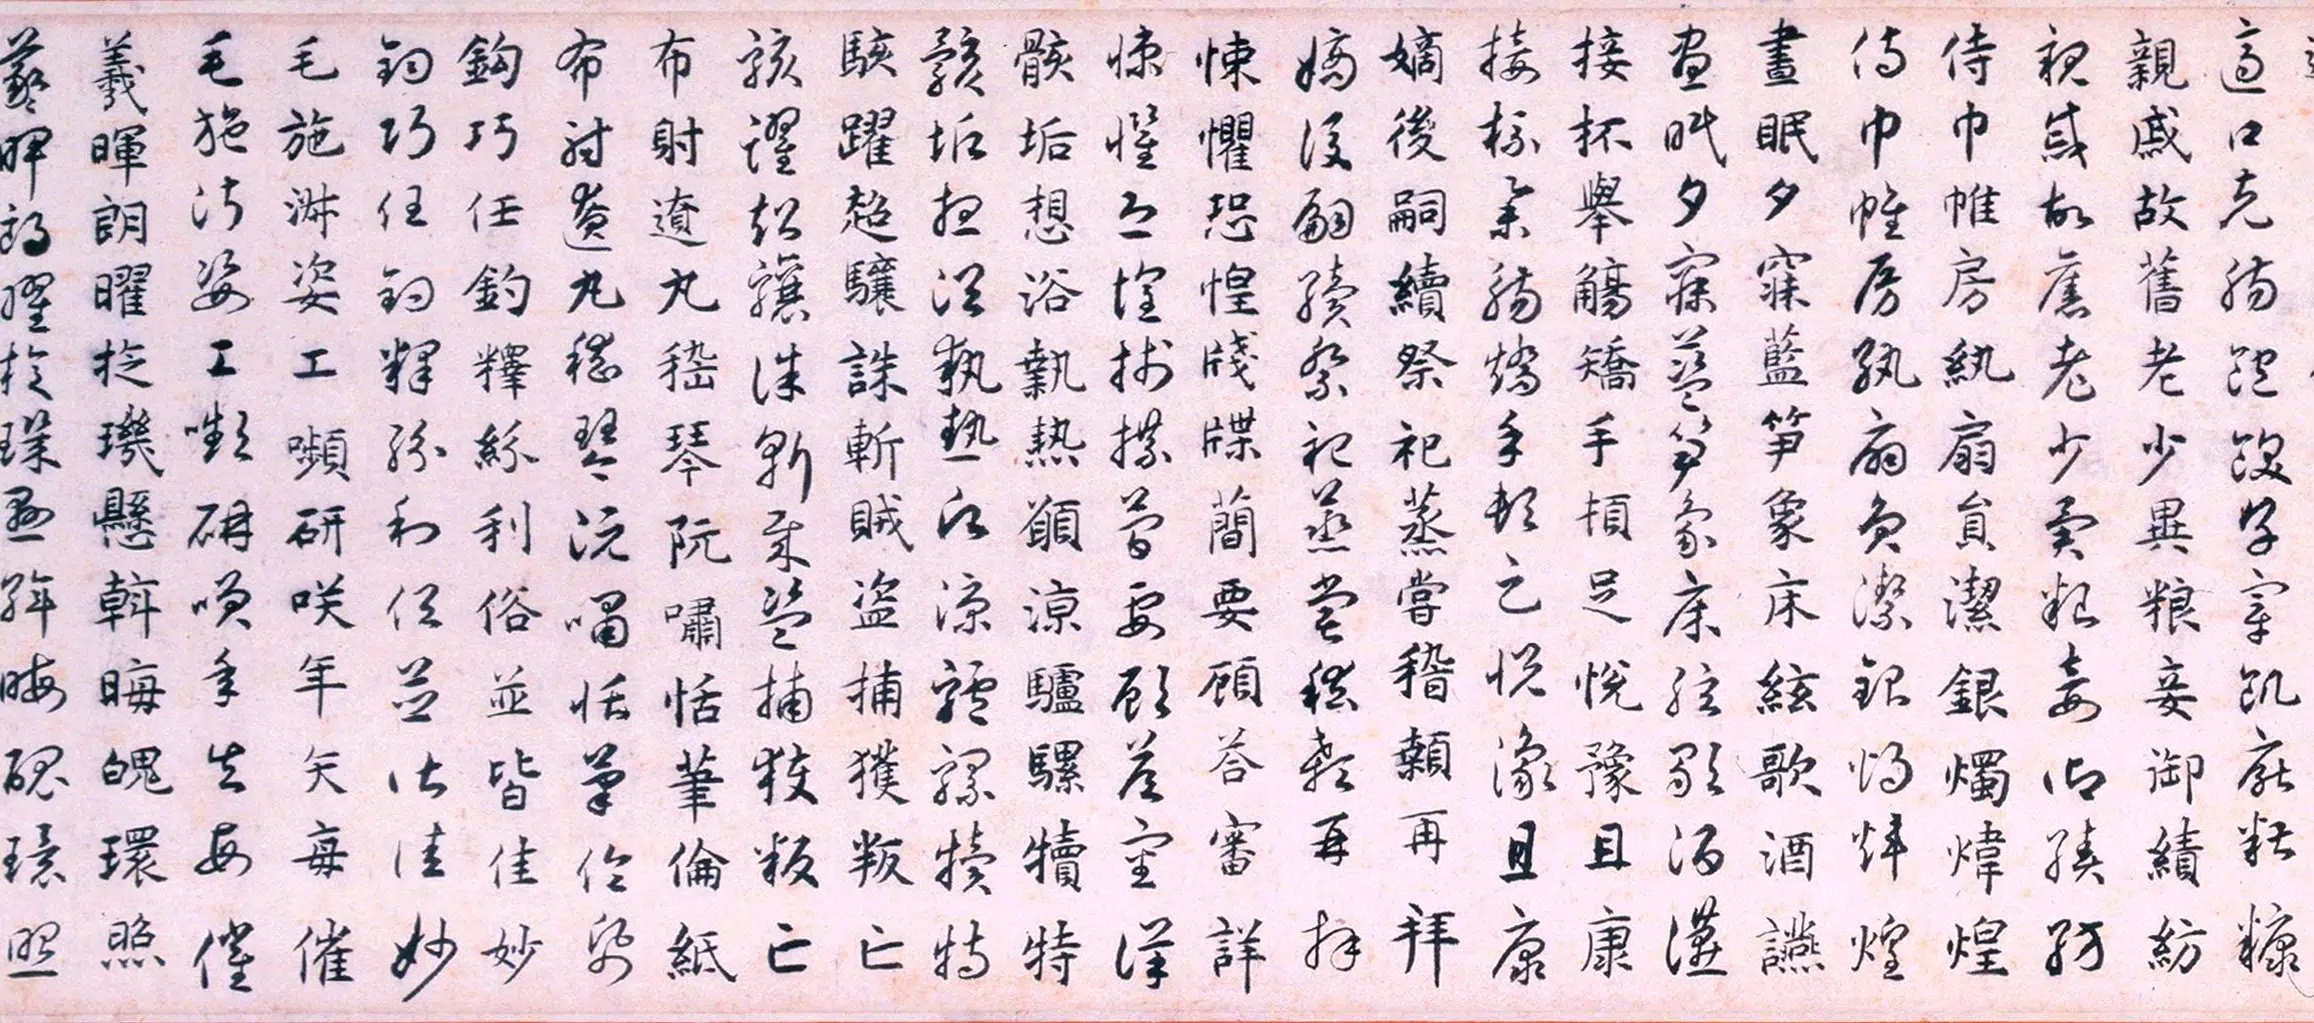 適口充腸飽飫烹宰飢厭糟糠
親戚故舊老少異粮妾御績紡
親戚故舊老少異粮妾御績紡
侍巾帷房紈扇員潔銀燭煒煌
侍巾帷房紈扇員潔銀燭煒煌
晝眠夕寐藍笋象床絃歌酒讌
晝眠夕寐藍笋象床絃歌酒讌
接杯舉觴矯手頓足悅豫且康
接杯舉觴矯手頓足悅豫且康
嫡後嗣續祭祀蒸嘗稽顙再拜
嫡後嗣續祭祀蒸嘗稽顙再拜
悚懼恐惶牋牒簡要顧荅審詳
悚懼恐惶牋牒簡要顧荅審詳
骸垢想浴執熱願涼驢騾犢特
骸垢想浴執熱願涼驢騾犢特
駭躍超驤誅斬賊盗捕獲叛亡
駭躍超驤誅斬賊盗捕獲叛亡
布射遼丸嵇琴阮嘯恬筆倫紙
布射遼丸嵇琴阮嘯恬筆倫紙
鈎巧任鈞釋紛利俗並皆佳妙
鈎巧任鈞釋紛利俗並皆佳妙
毛施淋姿工嚬研咲年矢每催
毛施淑姿工嚬研咲年矢每催
羲暉朗曜琁璣懸斡晦魄環照
羲暉朗曜琁璣懸斡晦魄環照